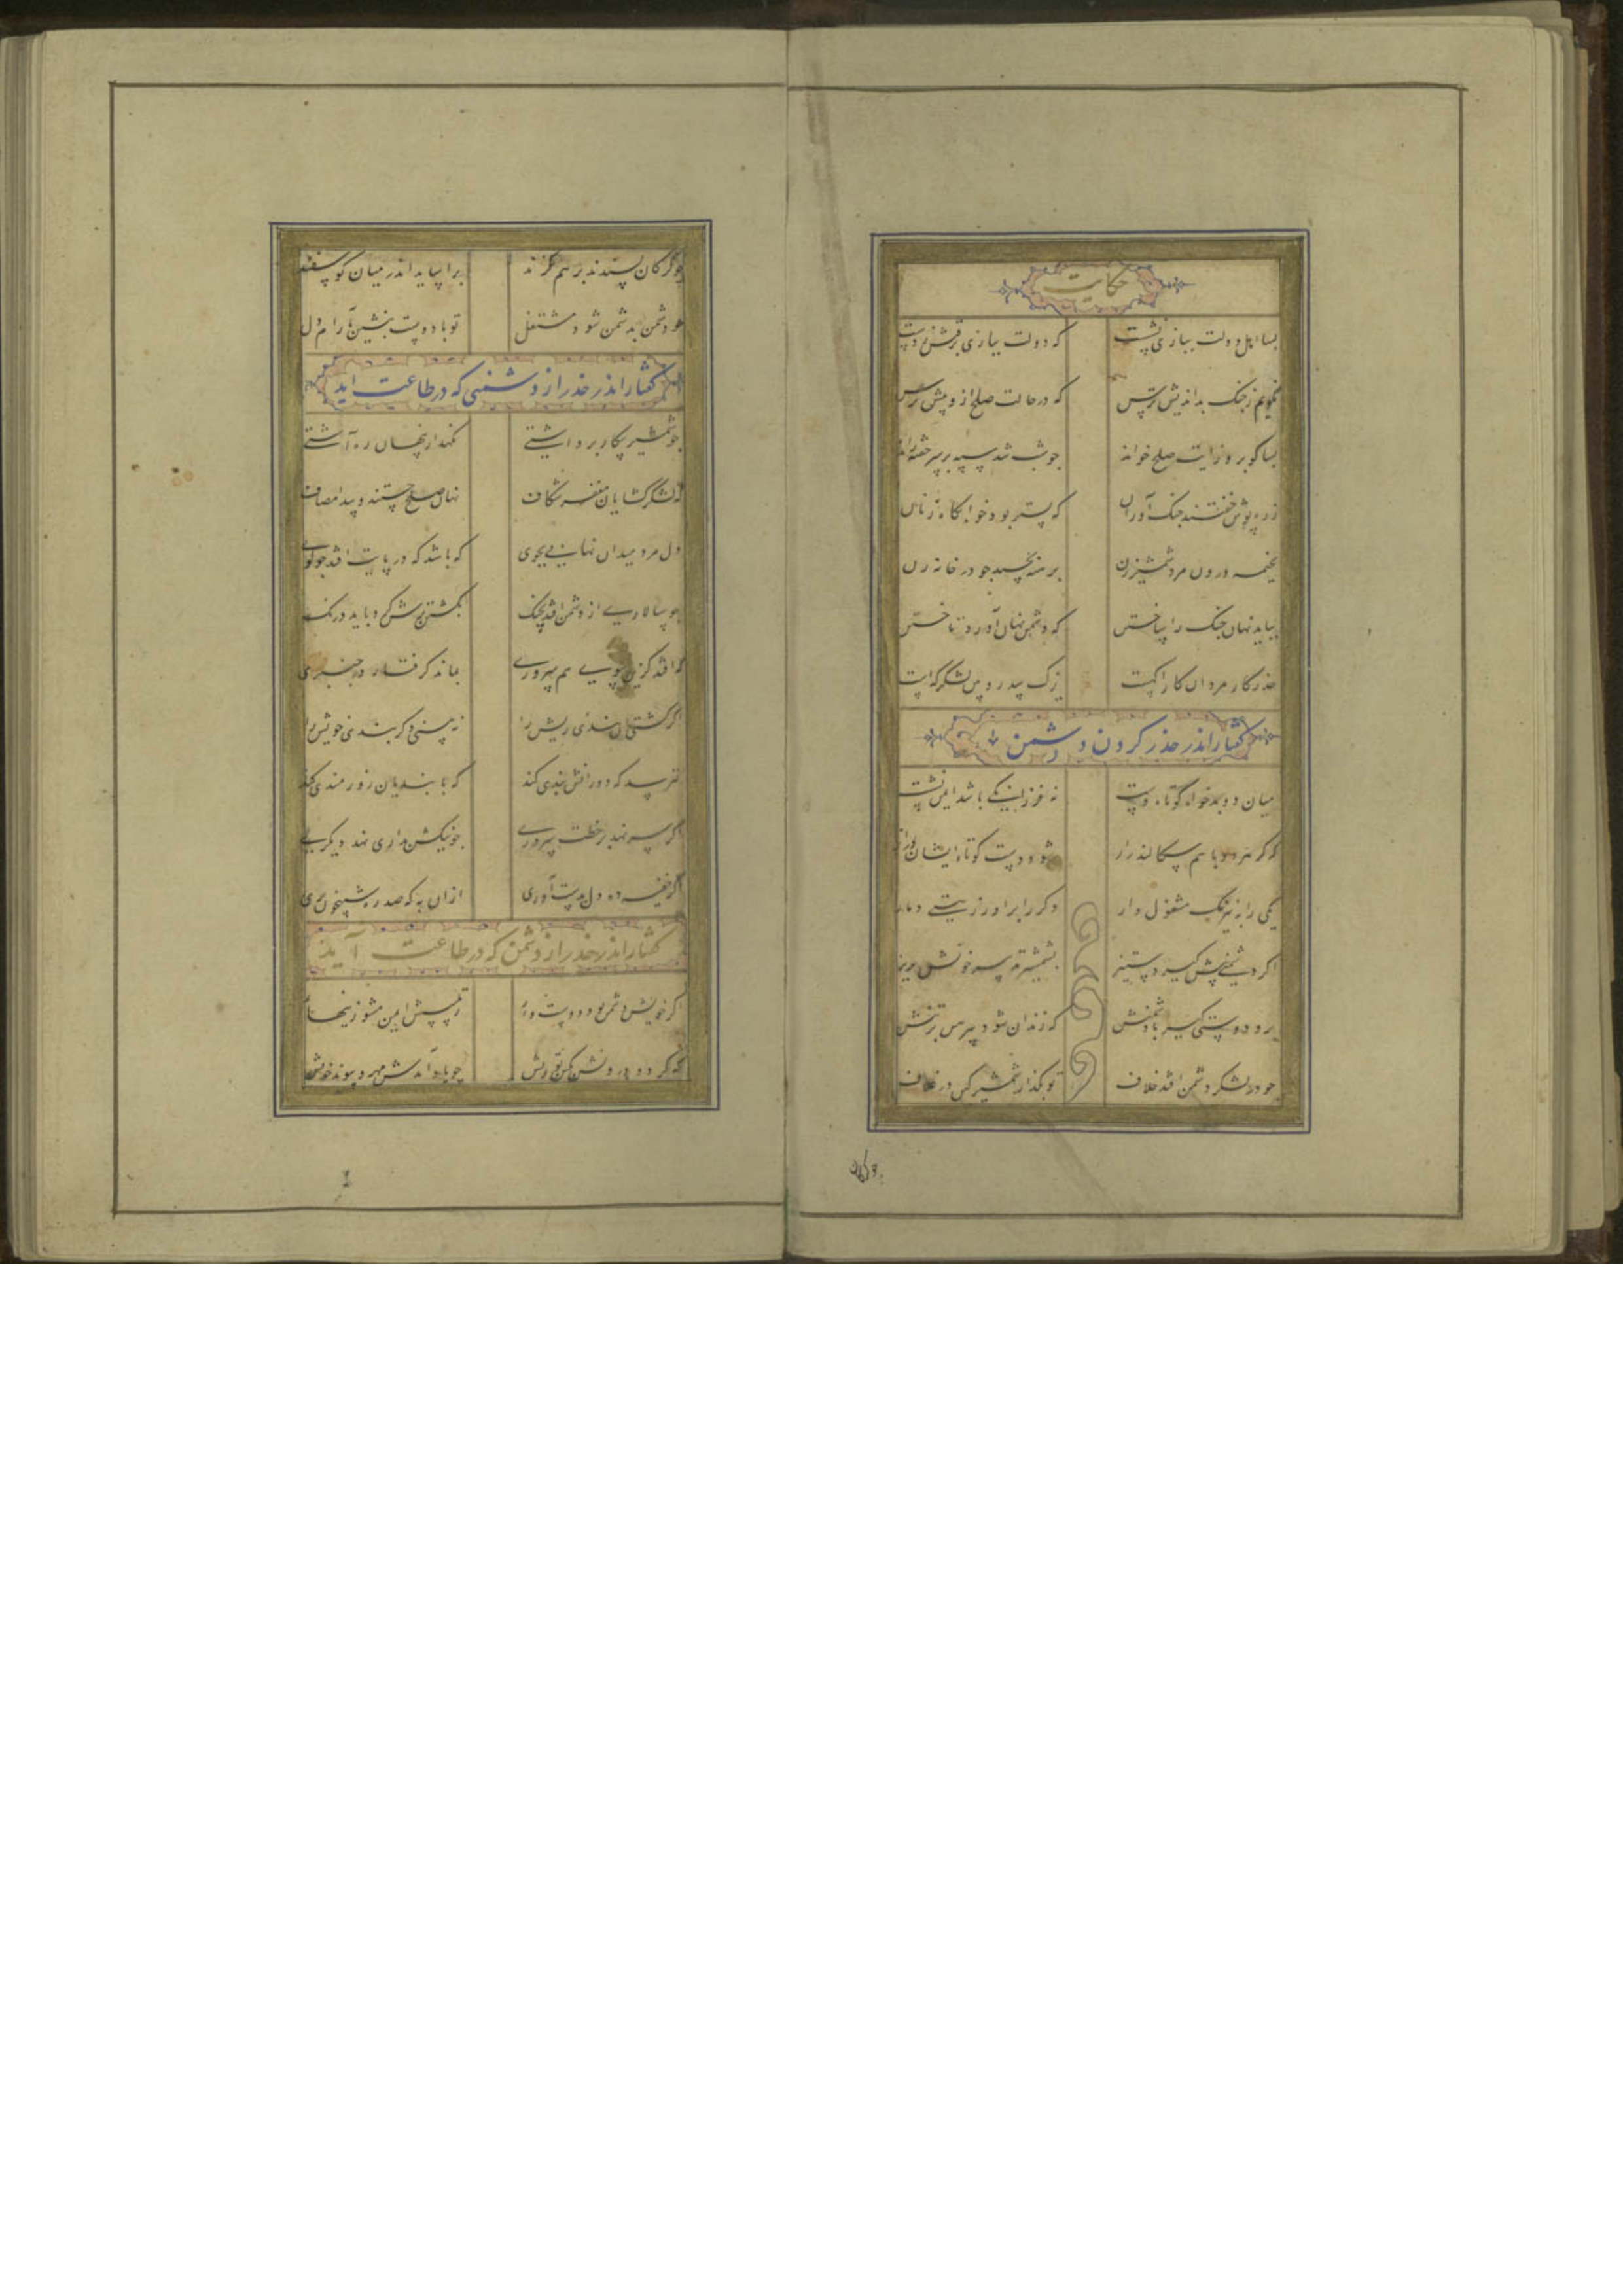 حکایت
بسا اهل دولت ببازی نشست که دولت ببازی برفتش ز دست
نکویم ز جنک بداندیش ترس که در حالت صلح ازو بیش ترس
بسا کو بروز آیت صلح خواند جو شب شد سپه بر سر خفته راند
زره پوش خفتند جنک آوران که بستر بود خوابکاه زنان
بخیمه درون مرد شمشیرزن برهنه نخسبد جو در خانه زن
بباید نهان جنک را ساختن که دشمن نهان آورد تاختن
حذر کار مردان کار اکهست یزک سد رویین لشکرکه است
کفتار اندر حذر کردن دشمن
میان دو بدخواه کوتاه دست نه فرزانکی باشد ایمن نشست
که کر هر دو با هم سکالند راز شود دست کوتاه ایشان دراز
یکی را به نیرنک مشغول دار دکر را براور ز هستی دمار
اکر دشمنی پیش کیرد ستیز بشمشیر تدبیر خونش بریز
برو دوستی کیر با دشمنش که زندان شود پیرهن بر تنش
جو در لشکر دشمن افتد خلاف تو بکذار شمشیر کین در غلاف
جو کرکان پسندند بر هم کزند براساید اندر میان کوسفند
جو دشمن بدشمن شود مشتغل تو با دوست بنشین بآرام دل
کفتار اندر حذر از دشمنی که در طاعت اید
جو شمشیر پیکار برداشتی نکهدار پنهان ره آشتی
که لشکر کشایان مغفر شکاف نهان صلح جستند و پیدا مصاف
دل مرد میدان نهانی بجوی که باشد که در پایت افتد جو کوی
جو سالاری از دشمن افتد بجنک بکشتن برش کرد باید درنک
که افتد کزین سوی هم سروری بماند کرفتار در جنبری
اکر کشتی این بندی ریش را نه بینی دکر بندی خویش را
نترسد که دورانش بندی کند که با بندیان زورمندی کند
اکر سر نهد بر خطت سروری جو نیکش بداری نهد دیکری
اکر خفیه ده دل بدست آوری از آن به که صد ره شبیخون بری
کفتار اندر حذر از دشمن که در طاعت آید
کرت خویش دشمن شود دوستدار ز تلبیسش ایمن مشو زینهار
که کردد درونش بکین تو ریش جو یاد آیدش مهر و پیوند خویش